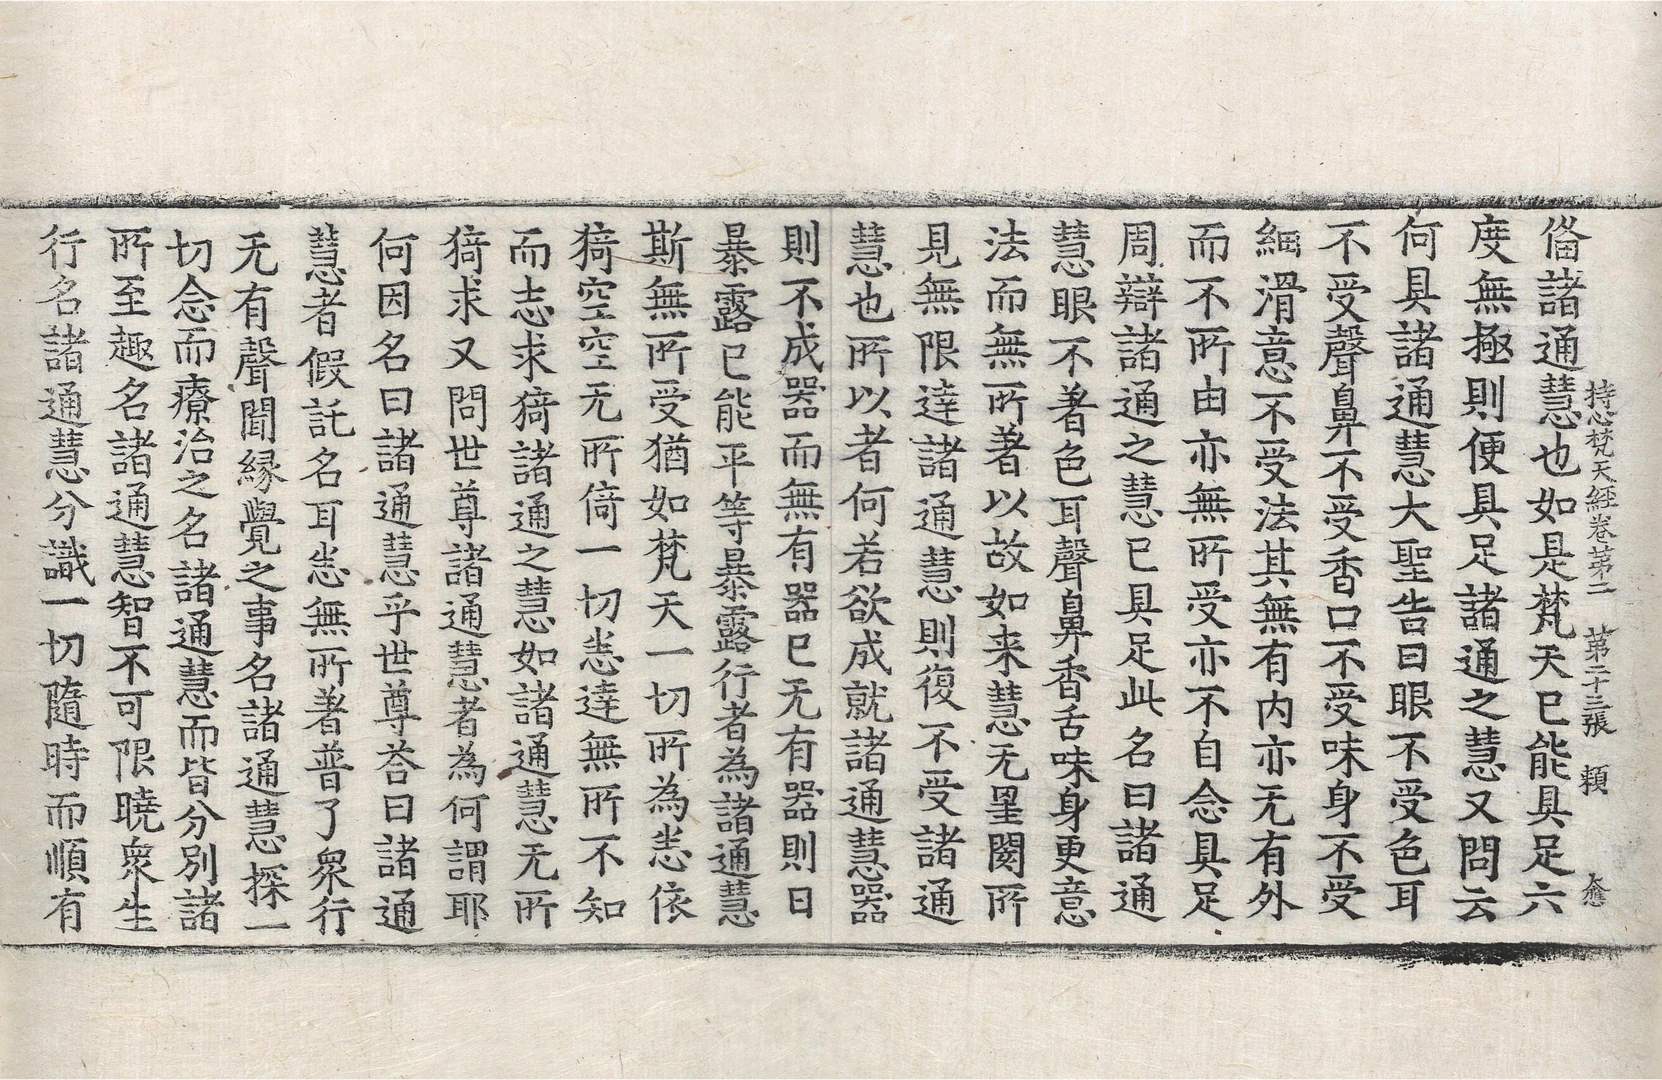 持心梵天經卷第二　第二十三張　賴
俻諸通慧也如是梵天已能具足六
度無極則便具足諸通之慧又問云
何具諸通慧大聖告曰眼不受色耳
不受聲鼻不受香口不受味身不受
細滑意不受法其無有内亦无有外
而不所由亦無所受亦不自念具足
周辯諸通之慧已具足此名曰諸通
慧眼不著色耳聲鼻香舌味身更意
法而無所著以故如来慧无罣閡所
見無限達諸通慧則復不受諸通
慧也所以者何若欲成就諸通慧器
則不成器而無有器已无有器則曰
暴露已能平等暴露行者為諸通慧
斯無所受猶如梵天一切所為恙依
猗空空无所倚一切恙達無所不知
而志求猗諸通之慧如諸通慧无所
猗求又問世尊諸通慧者為何謂耶
何因名曰諸通慧乎世尊荅曰諸通
慧者假託名耳恙無所著普了衆行
无有聲聞縁覺之事名諸通慧探一
切念而療治之名諸通慧而皆分別諸
所至趣名諸通慧智不可限曉衆生
行名諸通慧分識一切隨時而順有